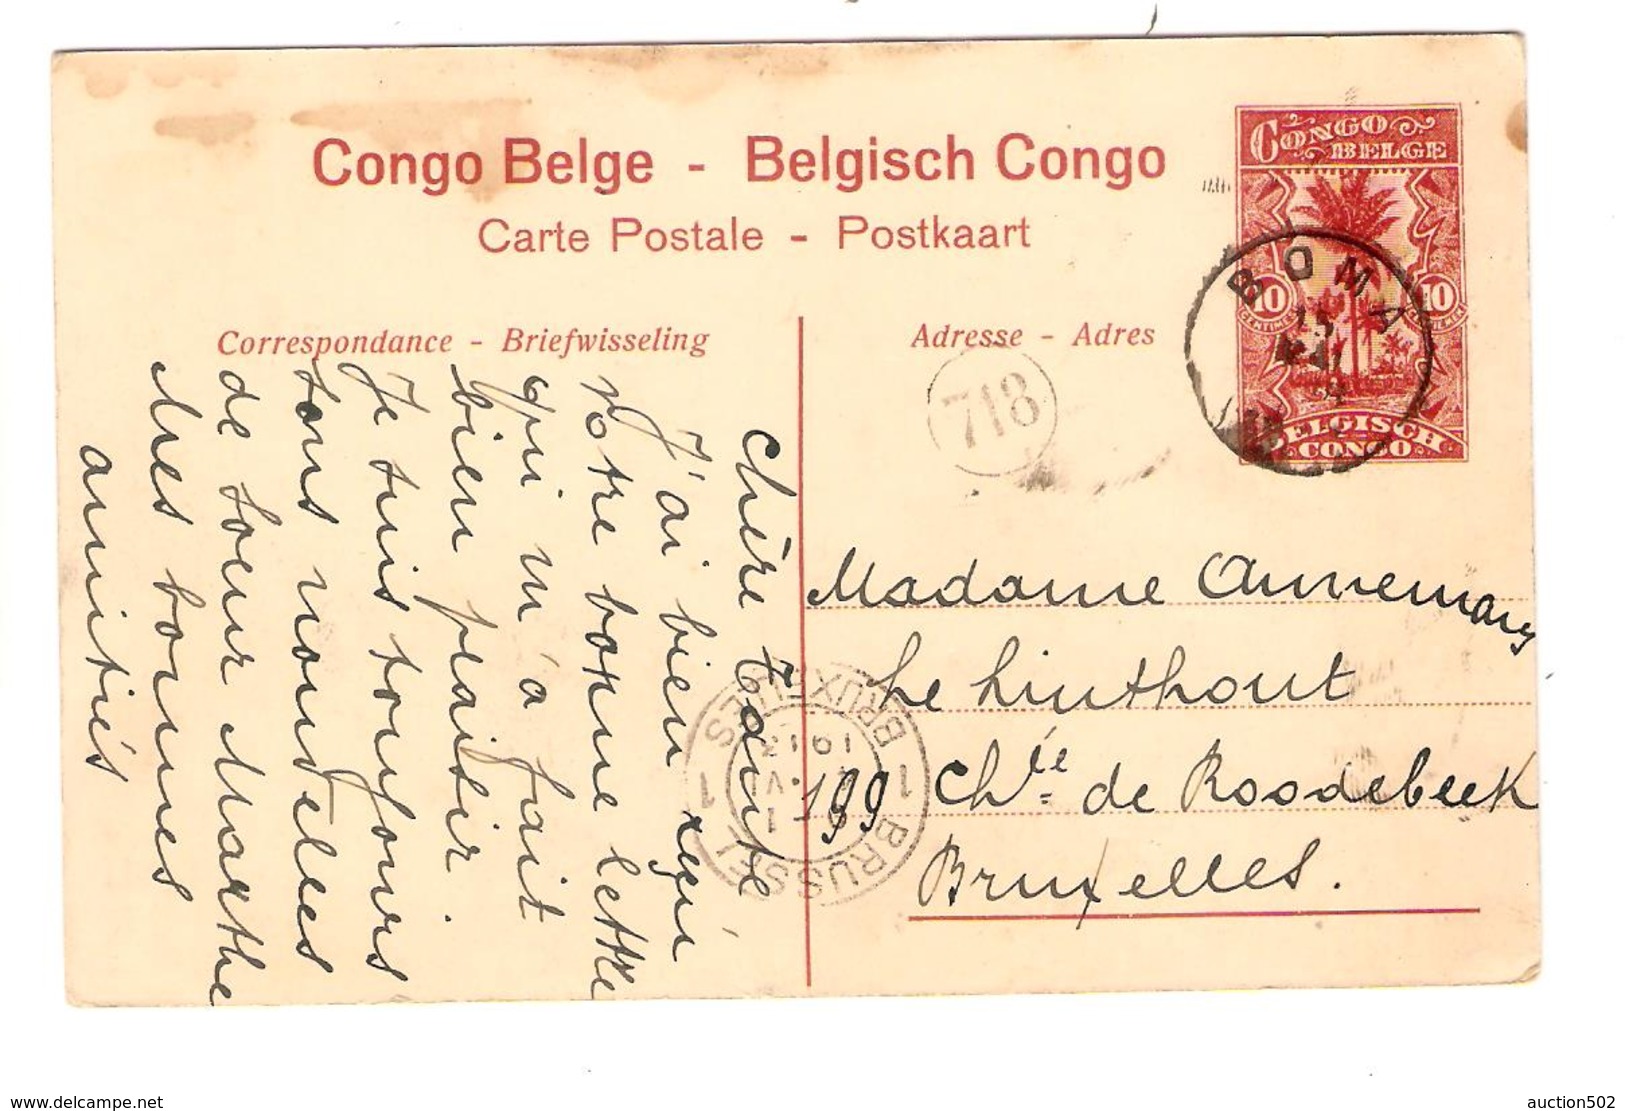 Congo Belge - Belgisch Congo
Carte Postale - Postkaart
CONGO
BELGE
10
10
BELGISCH
CONGO
BOMA
Correspondance - Briefwisseling
Adresse - Adres
718
Chère Tante
J'ai bien reçu
votre bonne lettre
qui m'a fait
bien plaisir.
Je suis toujours
sans nouvelles
de soeur Marthe
Mes bonnes
amitiés
Madame Annemary
Le Linthout
199 Chée de Roodebeek
Bruxelles.
1 BRUXELLES 1
BRUSSEL
delcampe.net
auction502